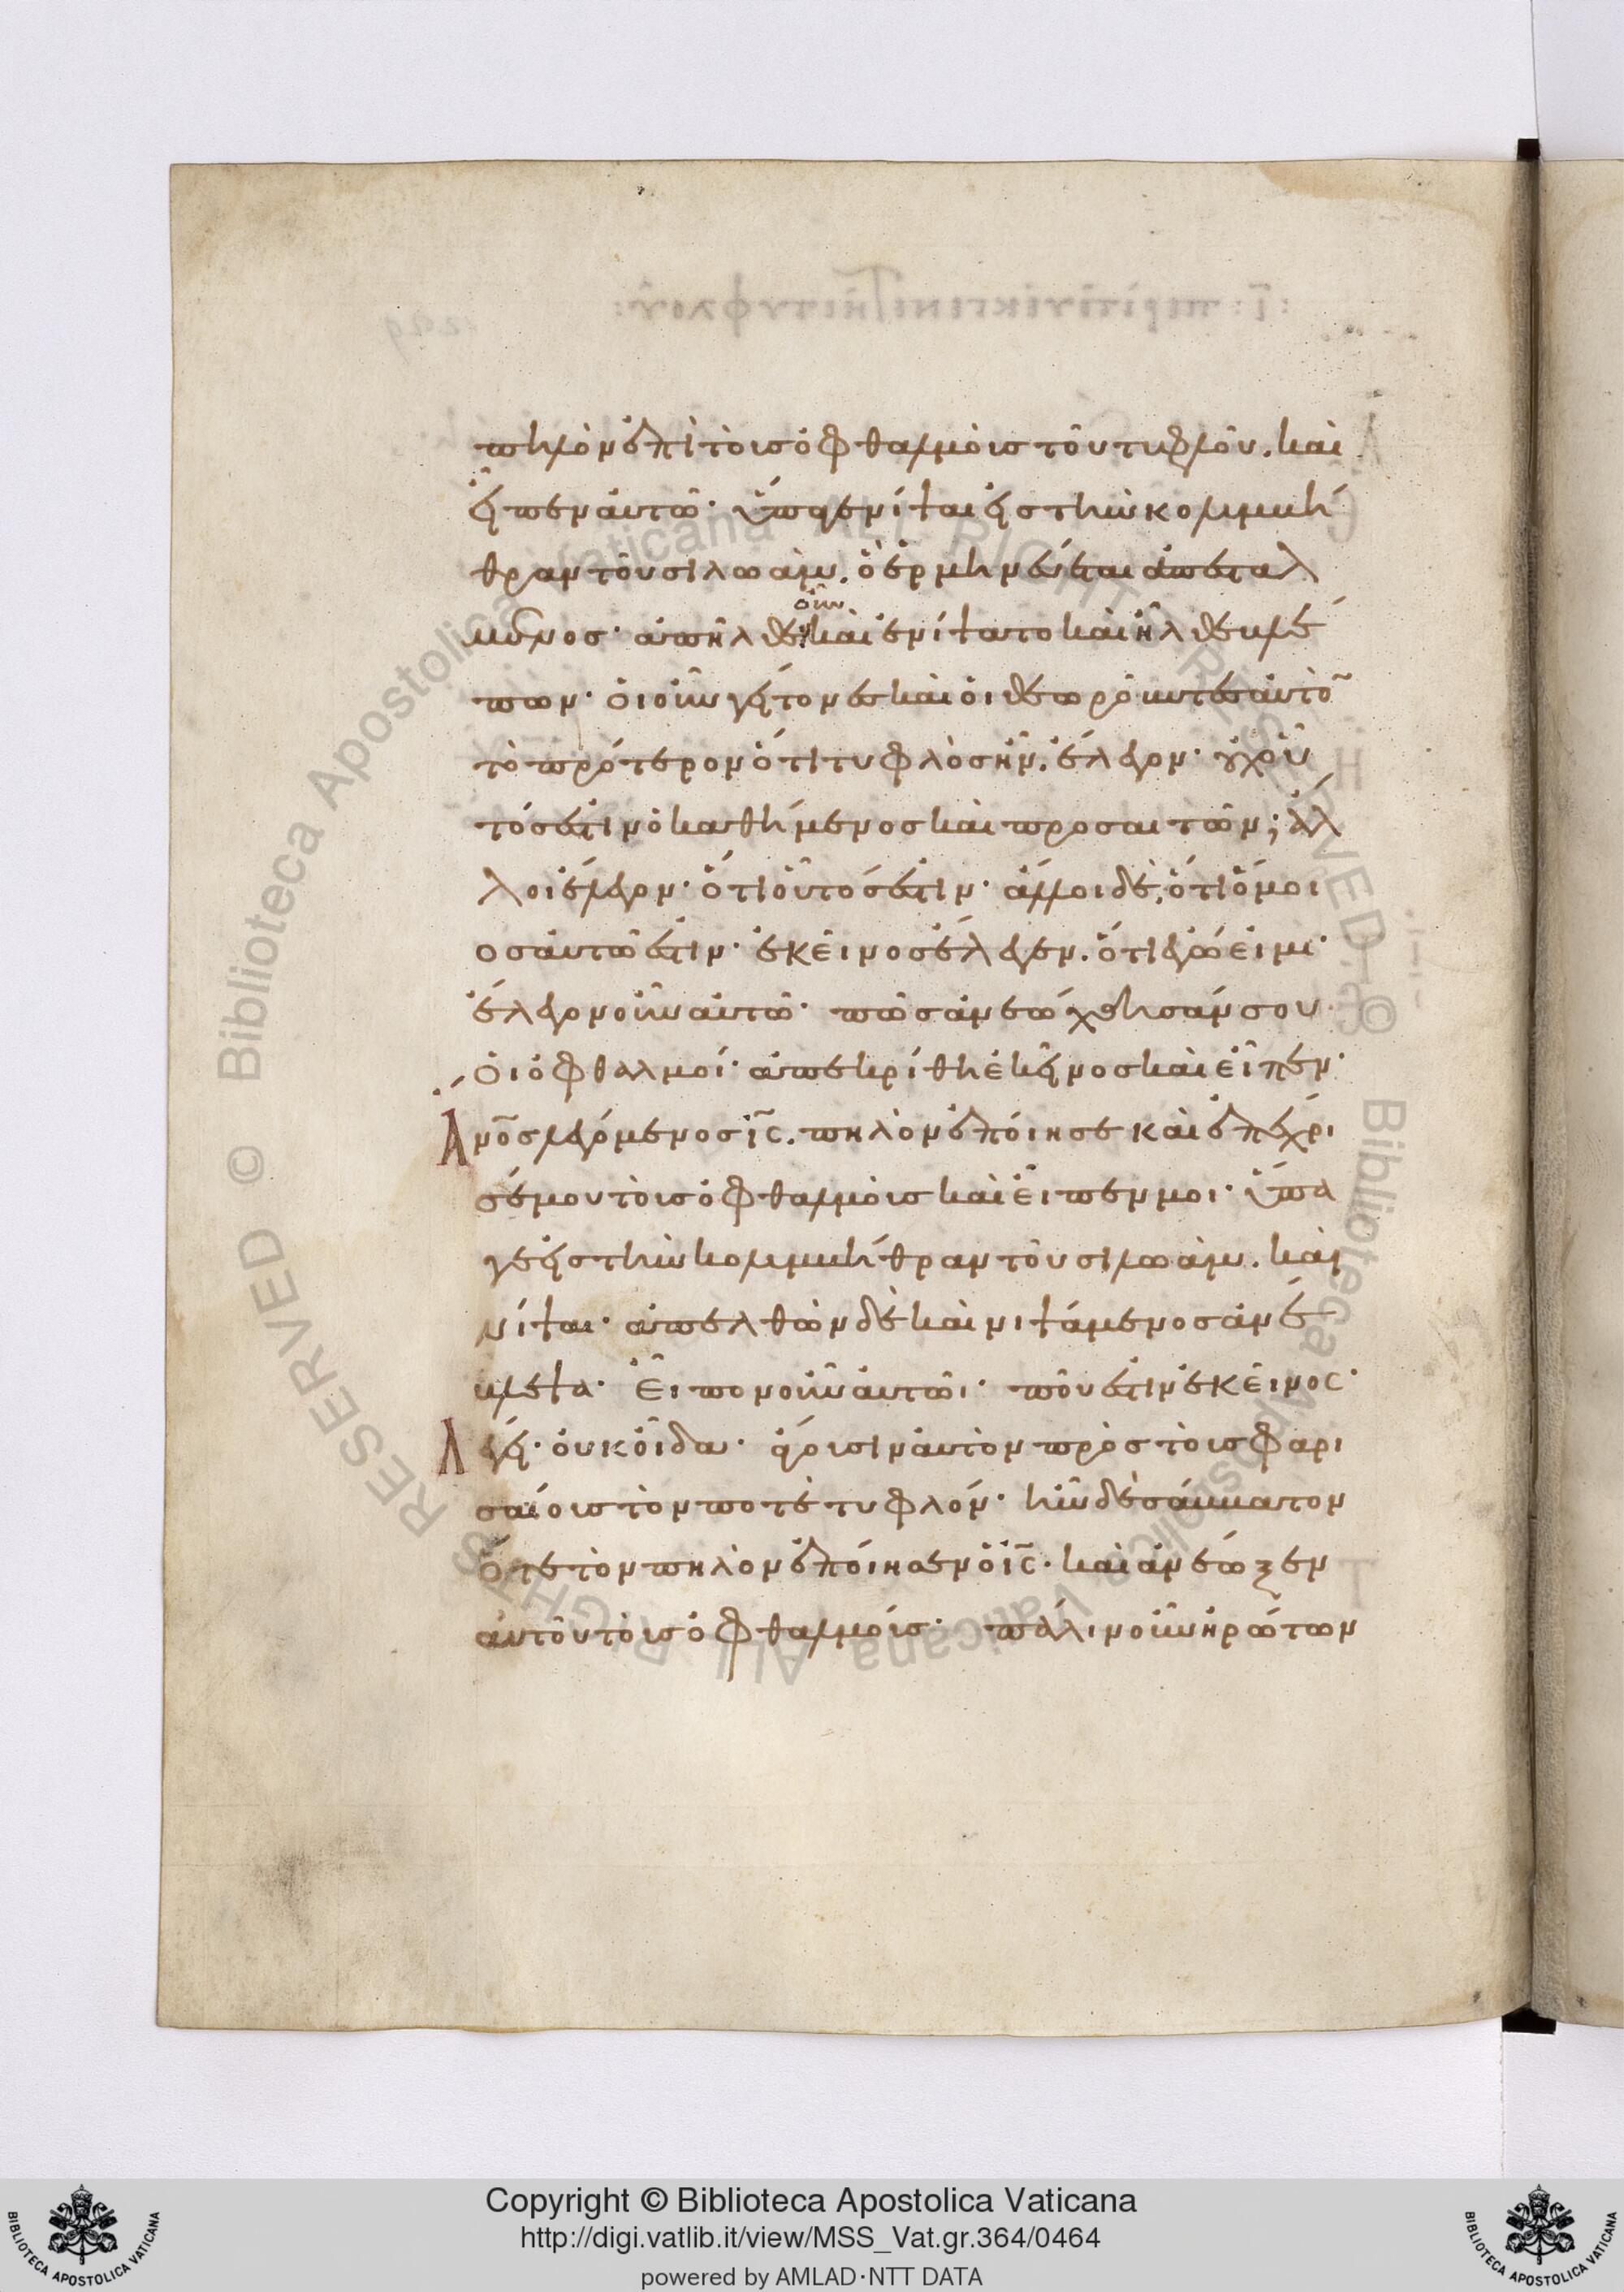 πηλὸν ἐπὶ τοὺσ ὀφθαλμοὺσ τοῦ τυφλοῦ. καὶ
εἶπεν αὐτῶ· ὕπαγε νίψαι εἰσ τὴν κολυμβή
θραν τοῦ σιλωάμ. ὃ ἑρμηνεύεται ἀπεσταλ
μένοσ· ἀπῆλθεν οὖν καὶ ἐνίψατο καὶ ἦλθε βλέ
πων· οἱ οὖν γείτονεσ καὶ οἱ θεωροῦντεσ αὐτὸ͂
τὸ πρότερον ὅτι τυφλὸσ ἦν. ἔλεγον· οὐχ οὗ
τόσ ἐστιν ὁ καθήμενοσ καὶ προσαιτῶν; ἄλ
λοι ἔλεγον· ὅτι οὗτόσ ἐστιν· ἄλλοι δὲ, ὅτι ὅμοι
οσ αὐτῶ ἐστιν· ἐκεῖνοσ ἔλεγεν. ὅτι ἐγώ εἰμι·
ἔλεγον οὖν αὐτῶ· πῶσ ἀνεώχθησάν σου
οἱ ὀφθαλμοί· ἀπεκρίθη ἐκεῖνοσ καὶ εἶπεν·
Ἄνο͞σ λεγόμενοσ ι͞ς. πηλὸν ἐποίησε καὶ ἐπέχρι
σέ μου τοὺσ ὀφθαλμοὺσ καὶ εἶπεν μοι· ὕπα
γε εἰσ τὴν κολυμβήθραν τοῦ σιλωάμ. καὶ
νίψαι· ἀπελθὼν δὲ καὶ νιψάμενοσ ἀνέ
βλεψα· εἶπον οὖν αὐτῶι· ποῦ ἐστιν ἐκεῖνος·
Λέγει· οὐκ οἶδα· ἄγουσιν αὐτὸν πρὸσ τοὺσ φαρι
σαίουσ τόν ποτὲ τυφλόν· ἦν δὲ σάββατον
ὅτε τὸν πηλὸν ἐποίησεν ὁ ι͞ς· καὶ ἀνέωξεν
αὐτοῦ τοὺσ ὀφθαλμούσ· πάλιν οὖν ἠρώτων
Copyright © Biblioteca Apostolica Vaticana
http://digi.vatlib.it/view/MSS_Vat.gr.364/0464
powered by AMLAD·NTT DATA
BIBLIOTECA APOSTOLICA VATICANA
BIBLIOTECA APOSTOLICA VATICANA
© Biblioteca Apostolica Vaticana ALL RIGHTS RESERVED
© Biblioteca Apostolica Vaticana ALL RIGHTS RESERVED